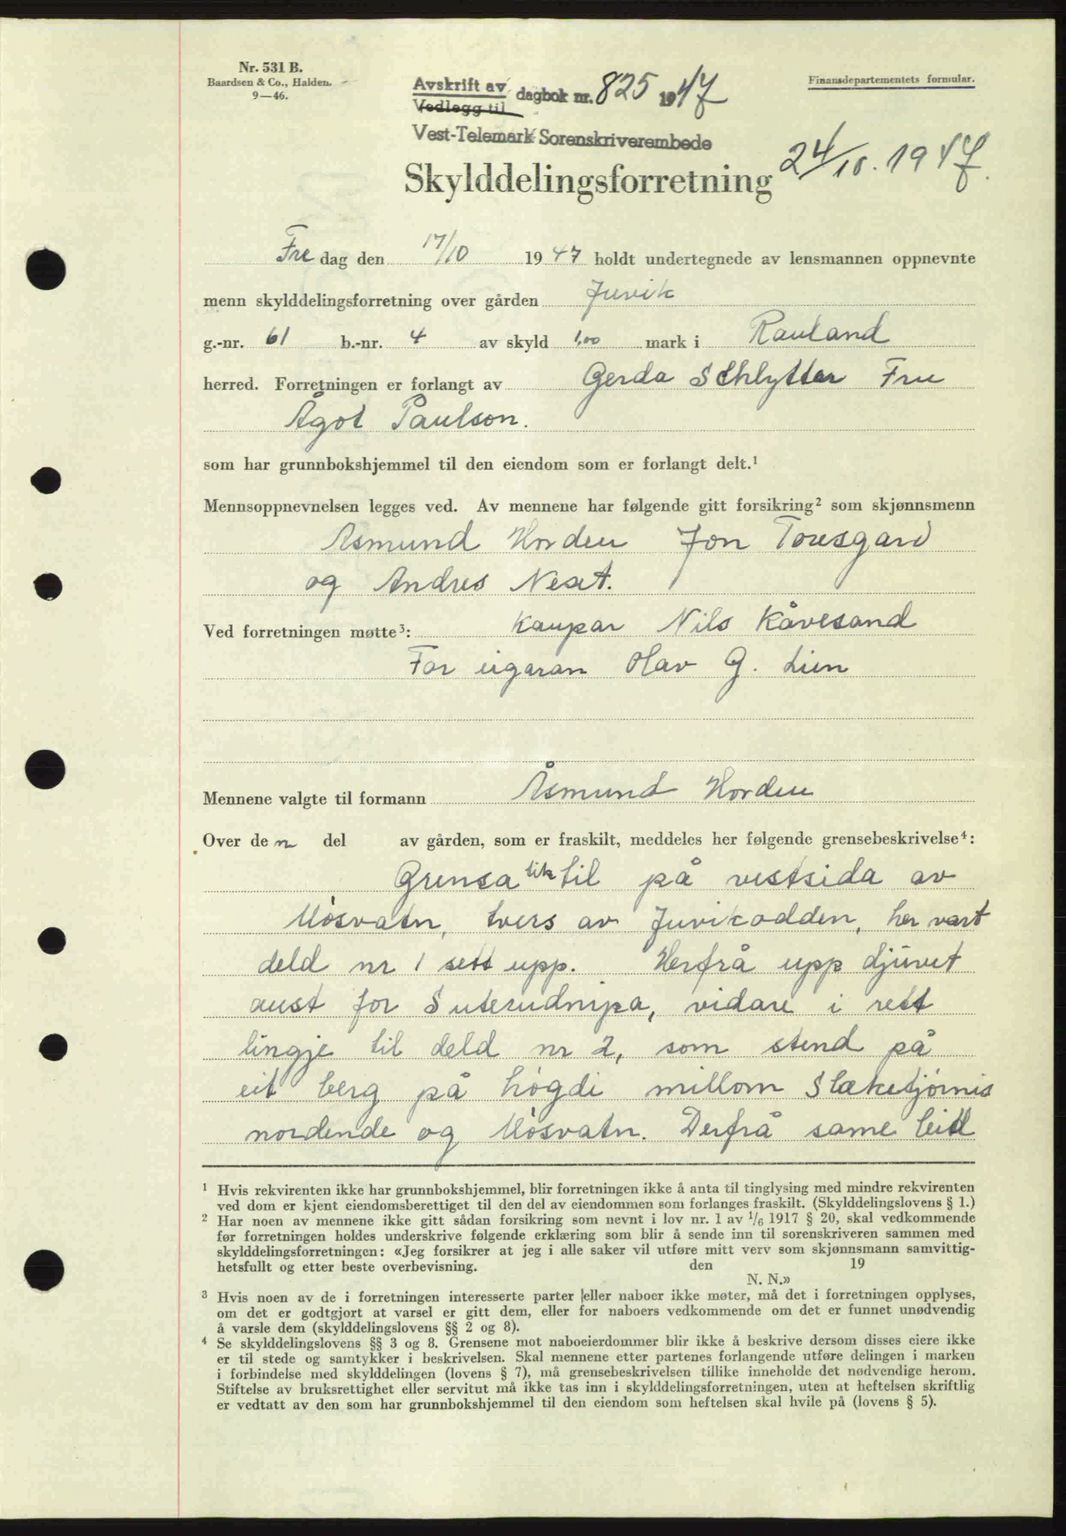 Nr. 531 B.
Baardsen & Co., Halden.
9—46.
Finansdepartementets formular.
Avskrift av dagbok nr. 825 1947
Vedlegg til
Vest-Telemark Sorenskriverembede
Skylddelingsforretning 24/10. 1947.
Fredag den 17/10 1947 holdt undertegnede av lensmannen oppnevnte
menn skylddelingsforretning over gården Juvik
g.-nr. 61 b.-nr. 4 av skyld 1,00 mark i Rauland
herred. Forretningen er forlangt av Gerda Schlytter Fru
Ågot Paulson.
som har grunnbokshjemmel til den eiendom som er forlangt delt.¹
Mennsoppnevnelsen legges ved. Av mennene har følgende gitt forsikring² som skjønnsmenn
Asmund Horden Jon Toresgard
og Andres
Ved forretningen møtte³: Kaupar Nils Kåvesand
For eigaran Olav G. Lien
Mennene valgte til formann Åsmund Horden
Over den del av gården, som er fraskilt, meddeles her følgende grensebeskrivelse⁴:
Grensa tek til på vestsida av
Møsvatn, tvers av Juvikodden, her vart
deld nr 1 sett upp. Herfrå upp djuvet
aust for Suterudnipa, vidare i rett
lingje til deld nr 2, som stend på
eit berg på høgdi millom Slæketjørnis
nordende og Møsvatn. Derfrå same leid
¹ Hvis rekvirenten ikke har grunnbokshjemmel, blir forretningen ikke å anta til tinglysing med mindre rekvirenten
ved dom er kjent eiendomsberettiget til den del av eiendommen som forlanges fraskilt. (Skylddelingslovens § 1.)
² Har noen av mennene ikke gitt sådan forsikring som nevnt i lov nr. 1 av 1/6 1917 § 20, skal vedkommende
før forretningen holdes underskrive følgende erklæring som blir å sende inn til sorenskriveren sammen med
skylddelingsforretningen: «Jeg forsikrer at jeg i alle saker vil utføre mitt verv som skjønnsmann samvittig-
hetsfullt og etter beste overbevisning. den 19
N. N.»
³ Hvis noen av de i forretningen interesserte parter eller naboer ikke møter, må det i forretningen opplyses,
om det er godtgjort at varsel er gitt dem, eller for naboers vedkommende om det er funnet unødvendig
å varsle dem (skylddelingslovens §§ 2 og 8).
⁴ Se skylddelingslovens §§ 3 og 8. Grensene mot naboeierdommer blir ikke å beskrive dersom disses eiere ikke
er til stede og samtykker i beskrivelsen. Skal mennene etter partenes forlangende utføre delingen i marken
i forbindelse med skylddelingen (lovens § 7), må grensebeskrivelsen tillike inneholde det nødvendige herom.
Stiftelse av bruksrettighet eller servitut må ikke tas inn i skylddelingsforretningen, uten at heftelsen skriftlig
er vedtatt av den som har grunnbokshjemmel til den eiendom som heftelsen skal hvile på (lovens § 5).